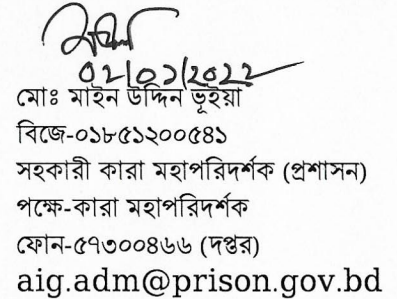 ০২/০১/২০২২
মোঃ মাইন উদ্দিন ভূইয়া
বিজে-০১৮৫১২০০৫৪১
সহকারী কারা মহাপরিদর্শক (প্রশাসন)
পক্ষে-কারা মহাপরিদর্শক
ফোন-৫৭৩০০৪৬৬ (দপ্তর)
aig.adm@prison.gov.bd